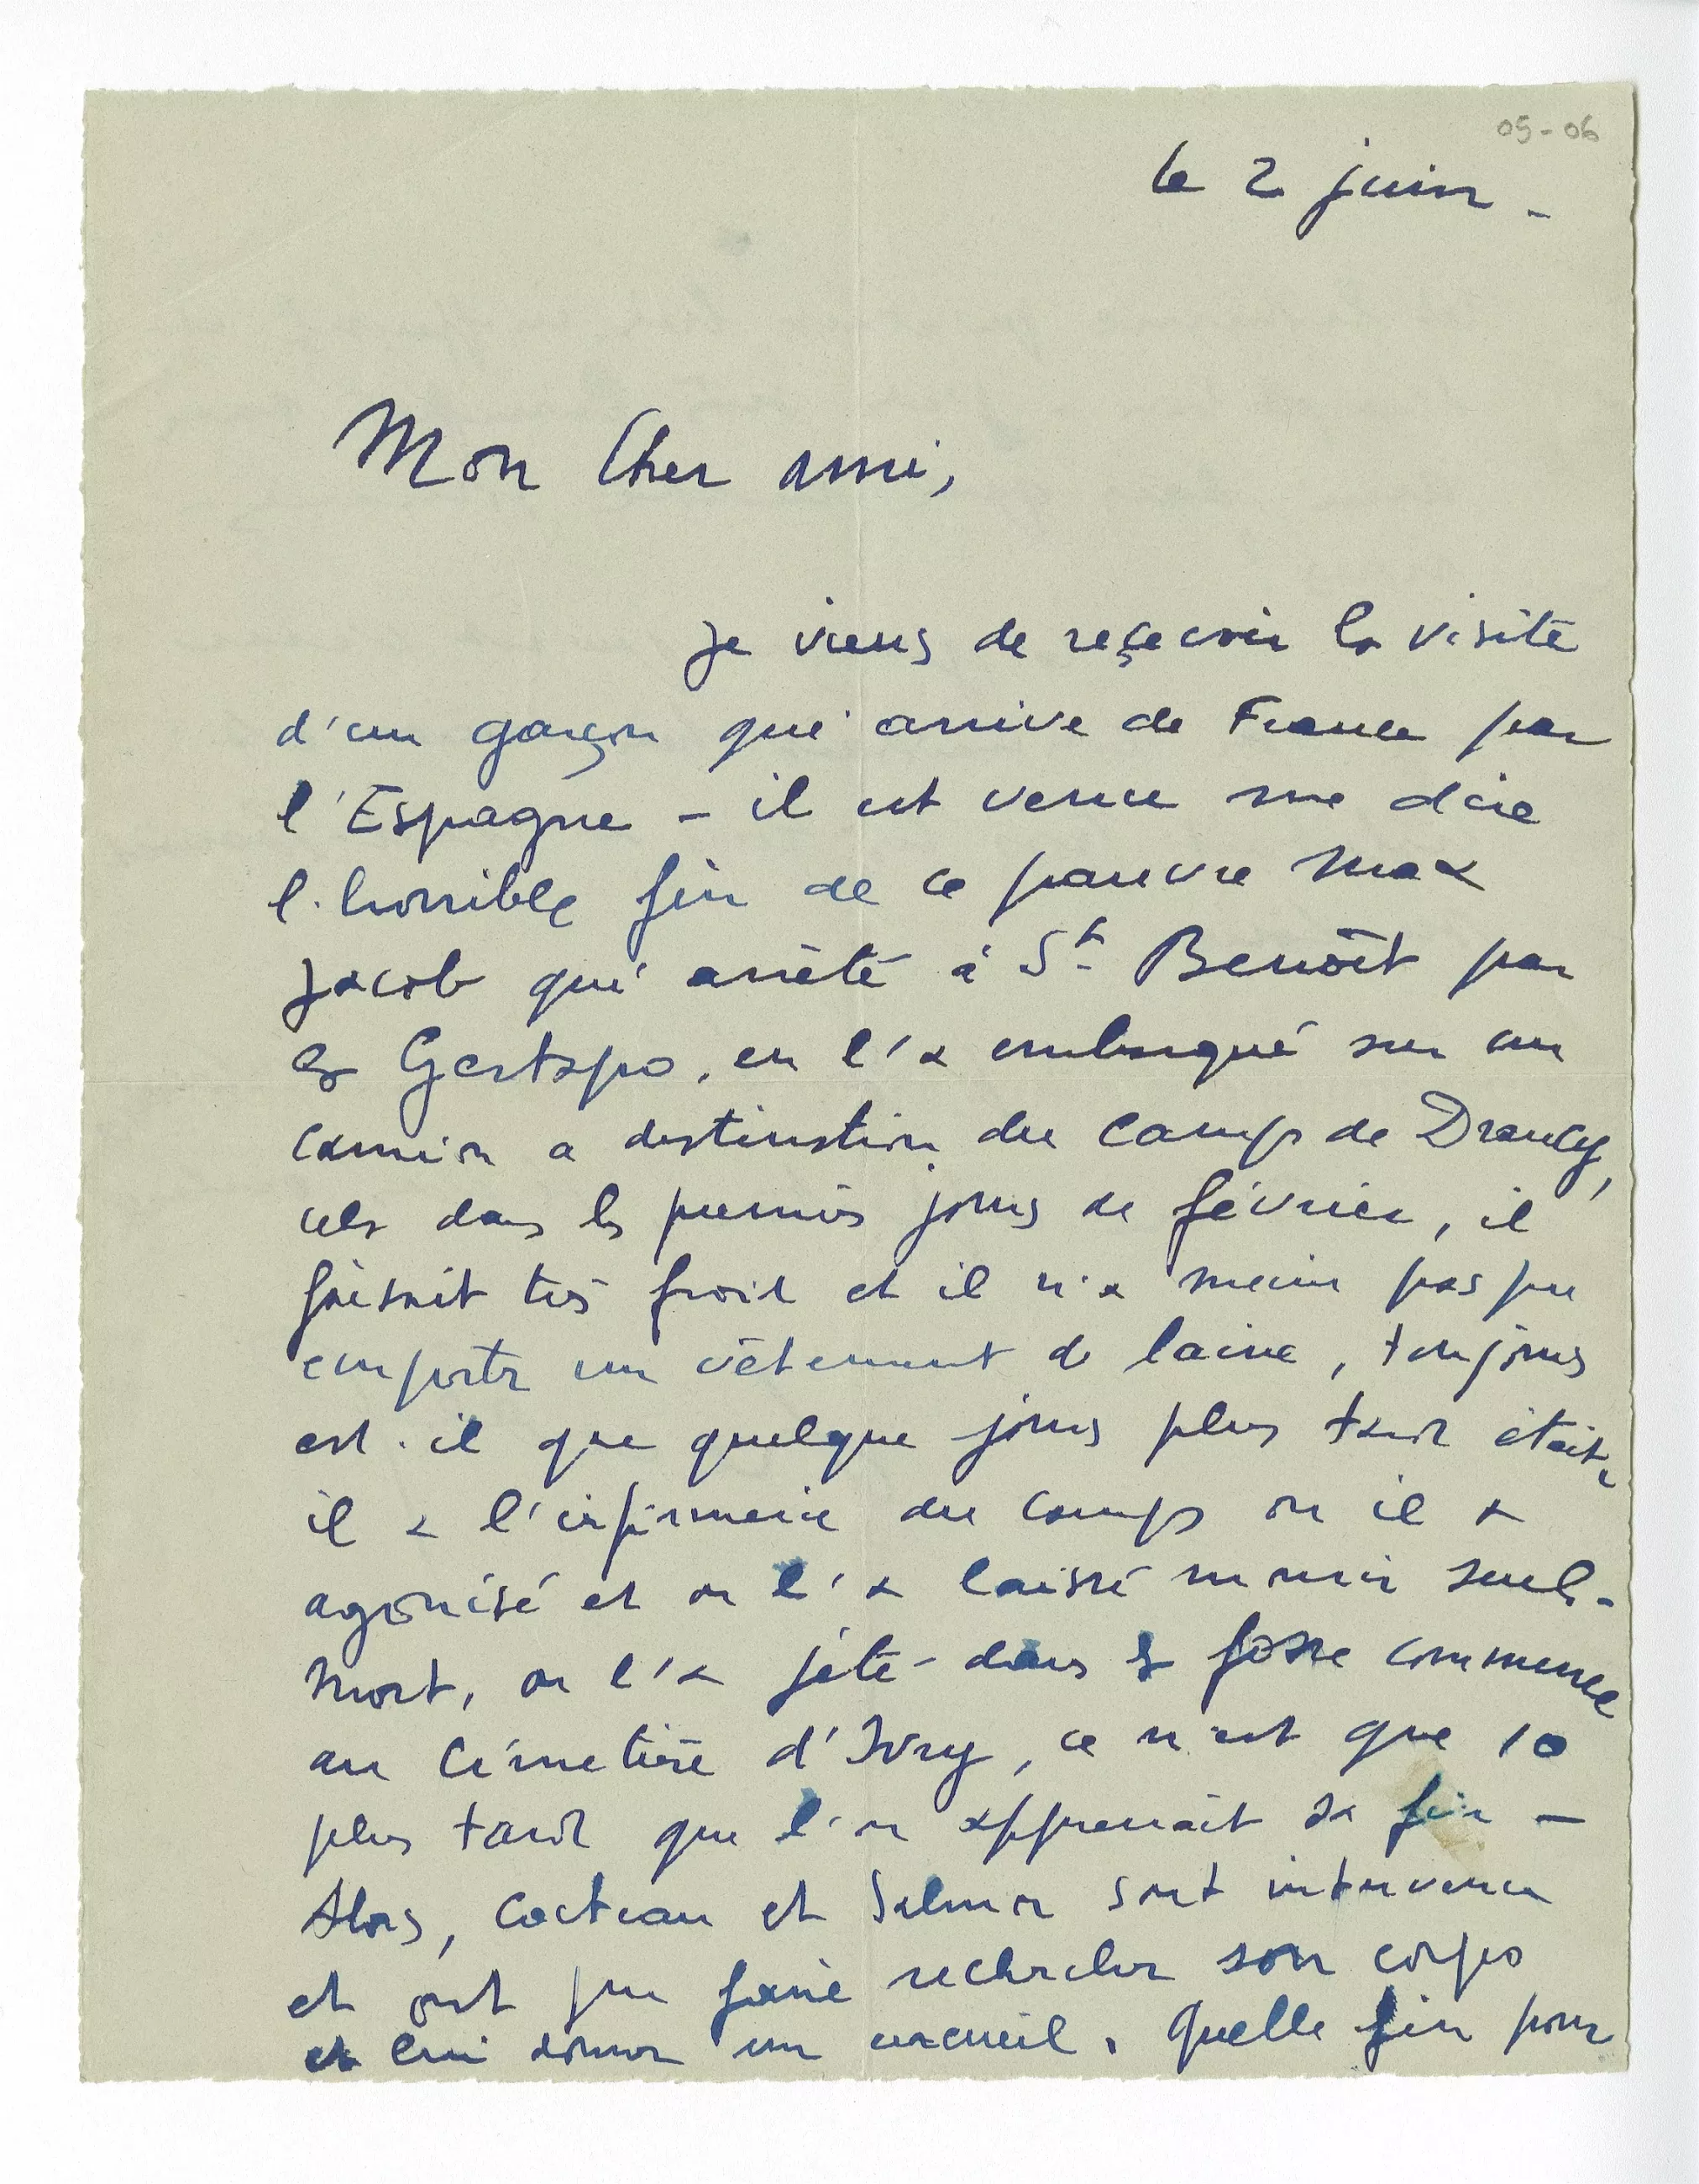 05-06
le 2 juin -
Mon Cher ami,
Je viens de reçevoir la visite
d'un garçon qui arrive de France par
l'Espagne - il est venu me dire
l'horrible fin de ce pauvre Max
Jacob qui arrêté à St Benoît par
la Gestapo, on l'a embarqué sur un
camion a destination du camp de Drancy,
cela dans les premiers jours de février, il
faisait très froid et il n'a même pas pu
emporter un vêtement de laine, toujours
est-il que quelque jours plus tard était-
il a l'infirmerie du camp ou il a
agonisé et on l'a laissé mourir seul -
Mort, on l'a jeté dans la fosse commune
au Cimetière d'Ivry, ce n'est que 10
plus tard que l'on apprenait sa fin -
Alors, Cocteau et Salmon sont intervenu
et ont pu faire rechercher son corps
et lui donner un cercueil. Quelle fin pour